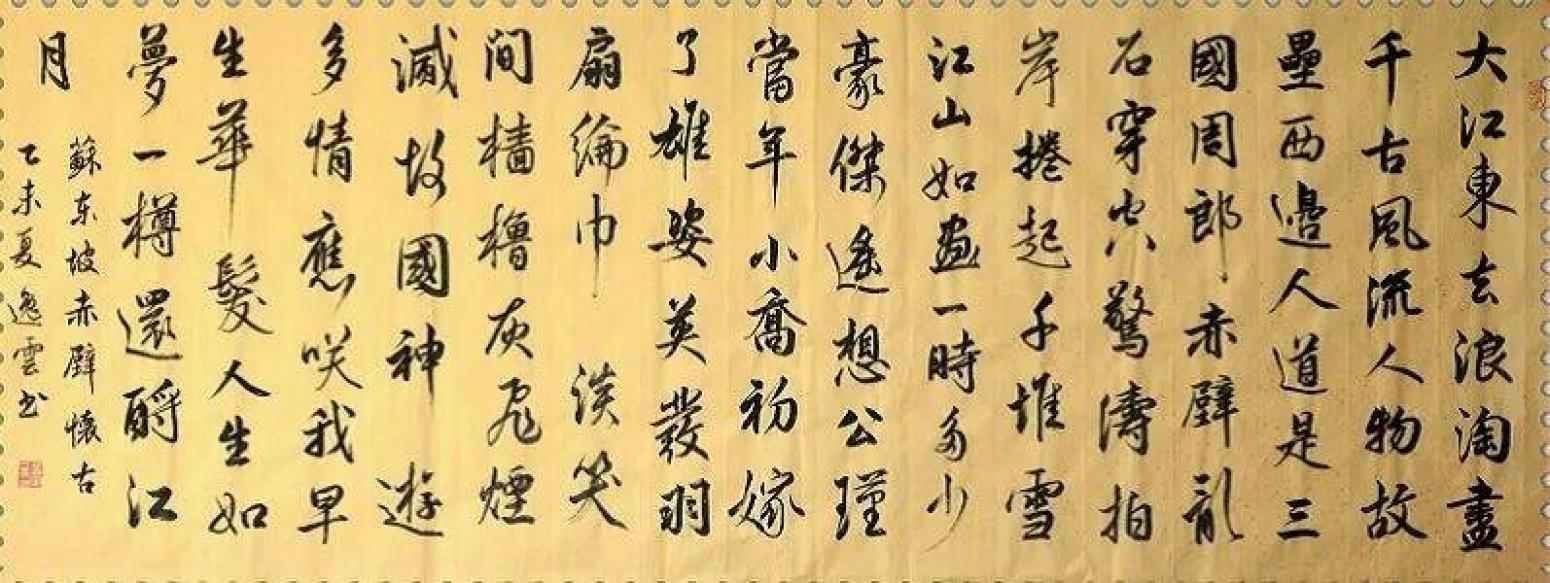 大江東去浪淘盡
千古風流人物故
壘西邊人道是三
國周郎赤壁亂
石穿空驚濤拍
岸捲起千堆雪
江山如畫一時多少
豪傑遙想公瑾
當年小喬初嫁
了雄姿英發羽
扇綸巾談笑
間檣櫓灰飛煙
滅故國神遊
多情應咲我早
生華髮人生如
夢一樽還酹江
月
蘇东坡赤壁懷古
乙未夏逸雲书